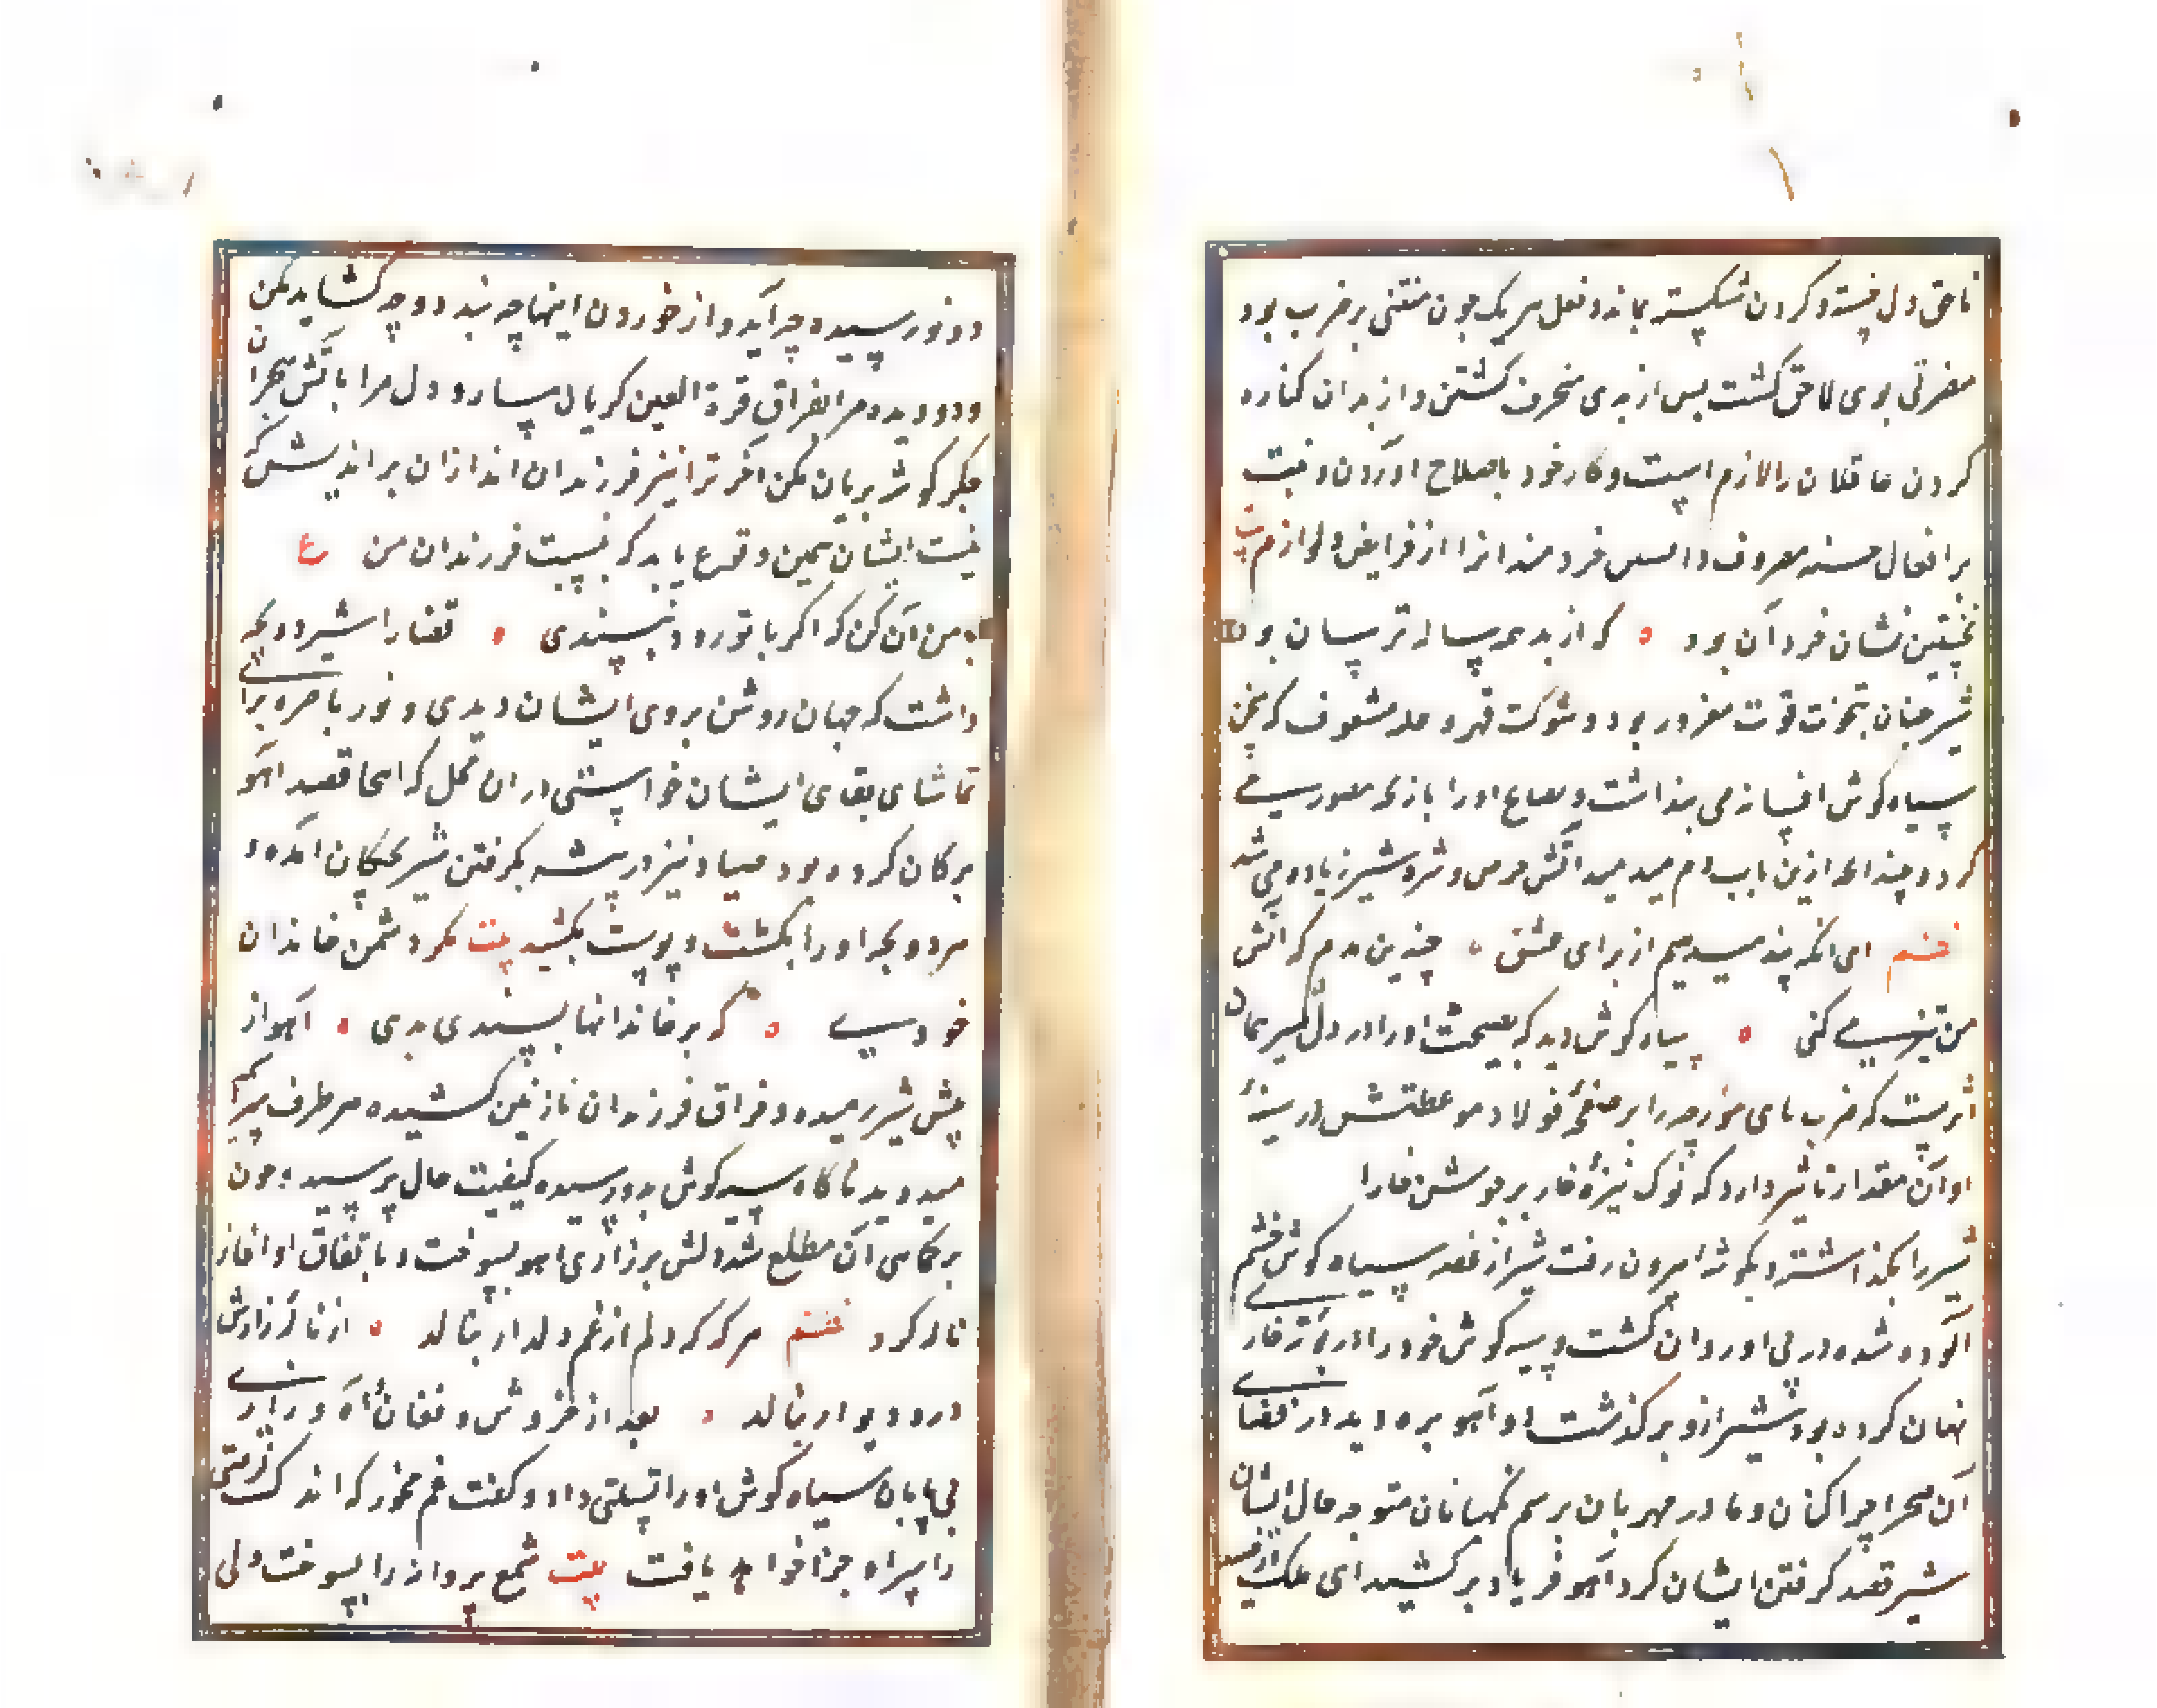 ناحق دل خسته و گردن شکسته بماند و نعل هر یک چون منتنی بر ضرب بود
مضرتی بوی لاحق گشت پس از بدی منحرف گشتن و از بدان کناره
کردن عاقلان را لازم است و کار خود باصلاح آوردن و
بر افعال حسنه معروف خردمندانرا از فرایض و لوازم بیت
نخستین نشان خرد آن بود که از بد همه ساله ترسان بود
شیر چنان بنخوت قوت مغرور بود و بشوکت قهر و مشعوف که سخن
سیاه گوش افسانه می پنداشت و او را بازیچه تصور
کرد و چندانکه ازین باب دم میدمید آتش حرص و شره شیر زیاده می شد
نظم ای آنکه پند میدهیم از برای عشق چندین مدم که آتش
من تیز میکنی سیاه گوش دید که نصیحت او را در دل شیر همان
اثرست که ضرب پای مورچه را بر صفحهٔ فولاد و موعظتش در سینهٔ
او آن مقدار تاثیر دارد که نوک نیزهٔ خار بر جوشن خارا
شیر را بگذاشت و بگوشه بیرون رفت شیر از غصه سیاه گوش خشم
آلوده شده در پی او روان گشت و سیه گوش خود را در بوته خار
نهان کرده بود شیر ازو برگذشت دو آهو بره دید در فضای
آن صحرا چراکنان و مادر مهربان برسم نگهبانان متوجه حال ایشان
شیر قصد گرفتن ایشان کرد آهو فریاد برکشید ای ملک از
دو نورسیده چه آید و از خوردن اینها چه بندد و چه گشاید مکن
و دو دیده مرا بفراق قرة العین گریان مساز و دل مرا بآتش هجران
جگرگوشه بریان مکن آخر ترا نیز فرزندان اند ازان براندیش که
نسبت ایشان همین وقوع یابد که نسبت فرزندان من ع
با من آن کن که اگر با تو رود بپسندی قضا را شیر دو بچه
داشت که جهان روشن بروی ایشان دیدی و نور باصره برای
تماشای بقای ایشان خواستی در آن محل که اینجا قصد آهو
برگان کرده بود صیاد نیز در بیشه بگرفتن شیر بچگان آمده و
هر دو بچه او را بکشت و پوست بکشید بیت نکرد دشمن خاندان
خودیی که بر خاندانها پسندی بدی آهو از
پیش شیر رمیده و فراق فرزندان نازنین کشیده هر طرف
میدوید ناگاه سیه گوش بدو رسیده کیفیت حال پرسید چون
بر آن مطلع شد دلش بر زاری آهو بسوخت و باتفاق او آغاز
ناله کرد نظم هر گه که دلم از غم دلدار بنالد از ناله زارش
در و دیوار بنالد بعد از خروش و فغان و آه و زاری
بی پایان سیاه گوش او را تسلی داد و گفت غم مخور که اندک فرصتی
را سزا و جزا خواهد یافت بیت شمع پروانه را بسوخت ولی